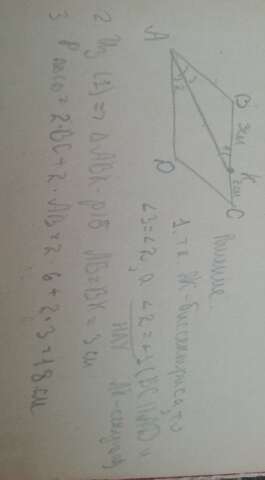 A
B
3 см
K
C
D
Решение.
1. т.к. AK - биссектриса, то
∠3=∠2, а ∠2=∠1 (BC||AD и
AK - секущая)
НЛУ
2 Из (1) => △ABK - р/б AB=BK=3 см
3 P = 2·BC+2·AB=2·6+2·3=18 см